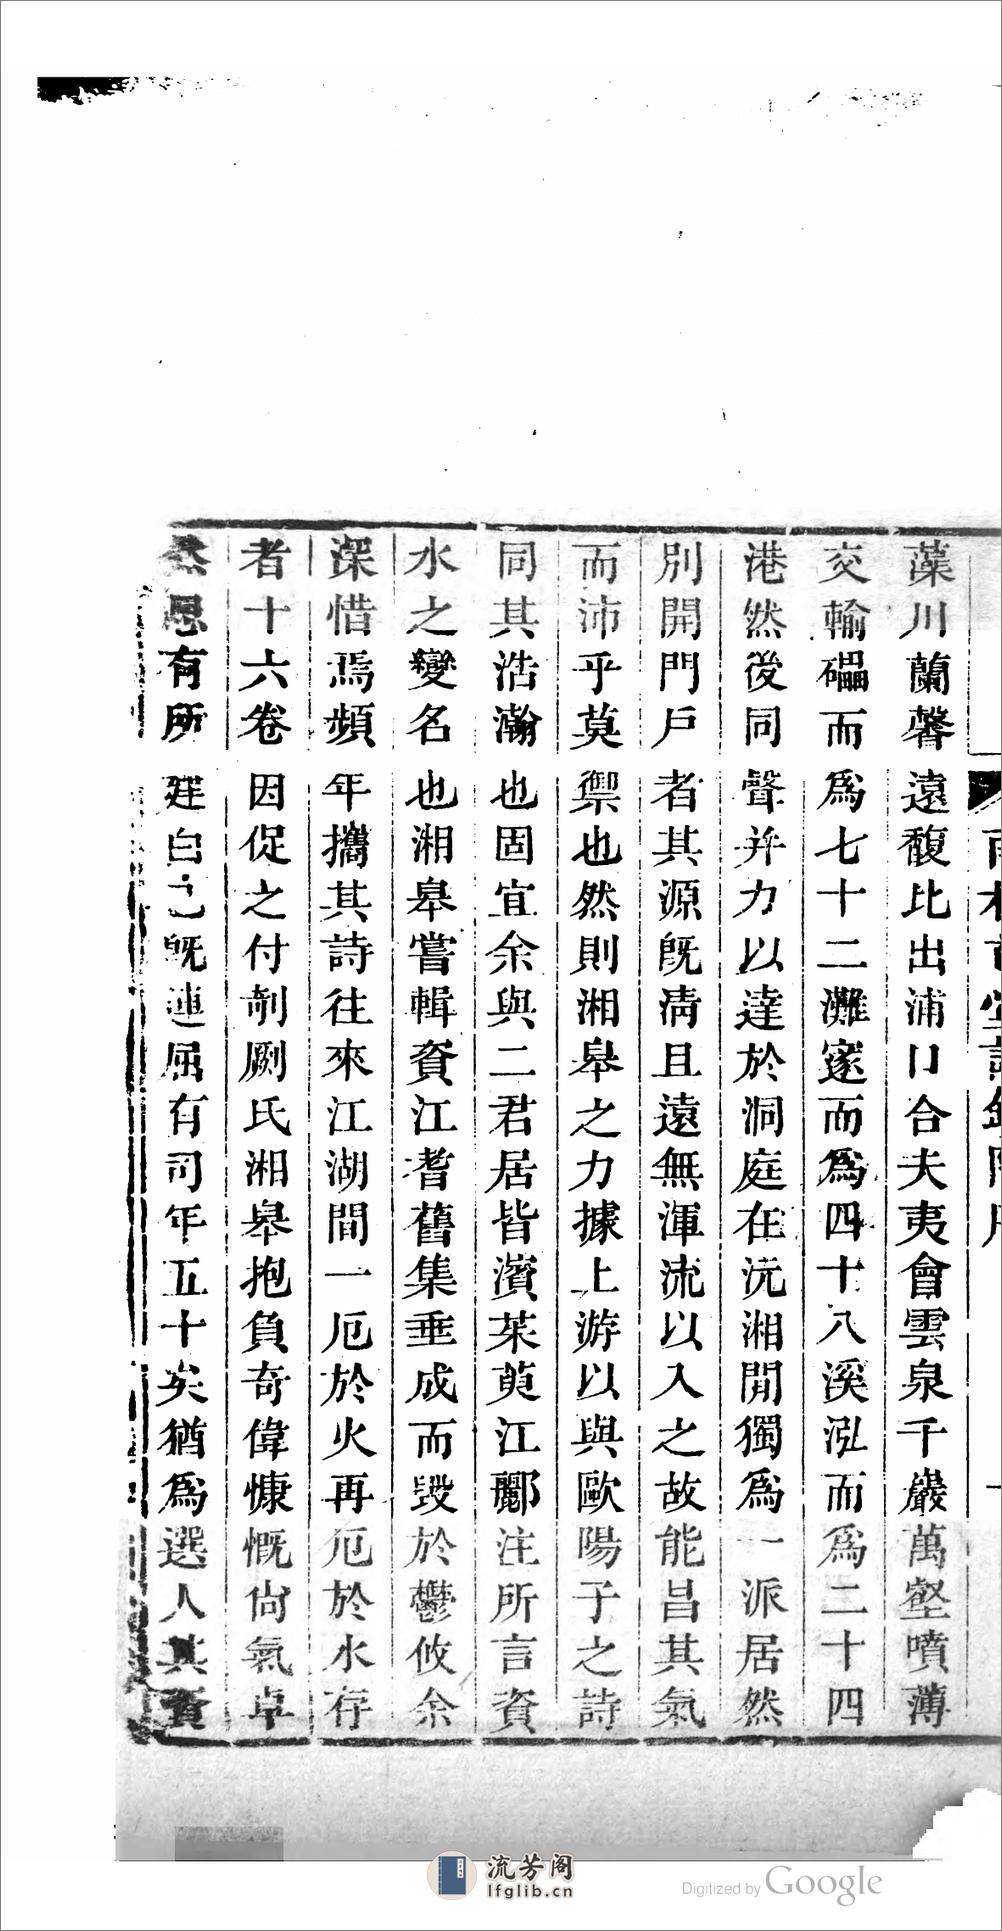 藻川蘭馨遠馥比出浦口合夫夷會雲泉千巖萬壑噴薄
交輸礧而爲七十二灘邃而爲四十八溪泓而爲二十四
港然後同聲并力以達於洞庭在沅湘閒獨爲一派居然
別開門戶者其源旣淸且遠無渾流以入之故能昌其氣
而沛乎莫禦也然則湘皋之力據上游以與歐陽子之詩
同其浩瀚也固宜余與二君居皆濱茱萸江酈注所言資
水之變名也湘皋嘗輯資江耆舊集垂成而毀於鬱攸余
深惜焉頻年攜其詩往來江湖間一厄於火再厄於水存
者十六卷因促之付剞劂氏湘皋抱負奇偉慷慨尙氣卓
然思有所建白已旣連屈有司年五十矣猶爲選人其資
流芳阁
lfglib.cn
Digitized by Google